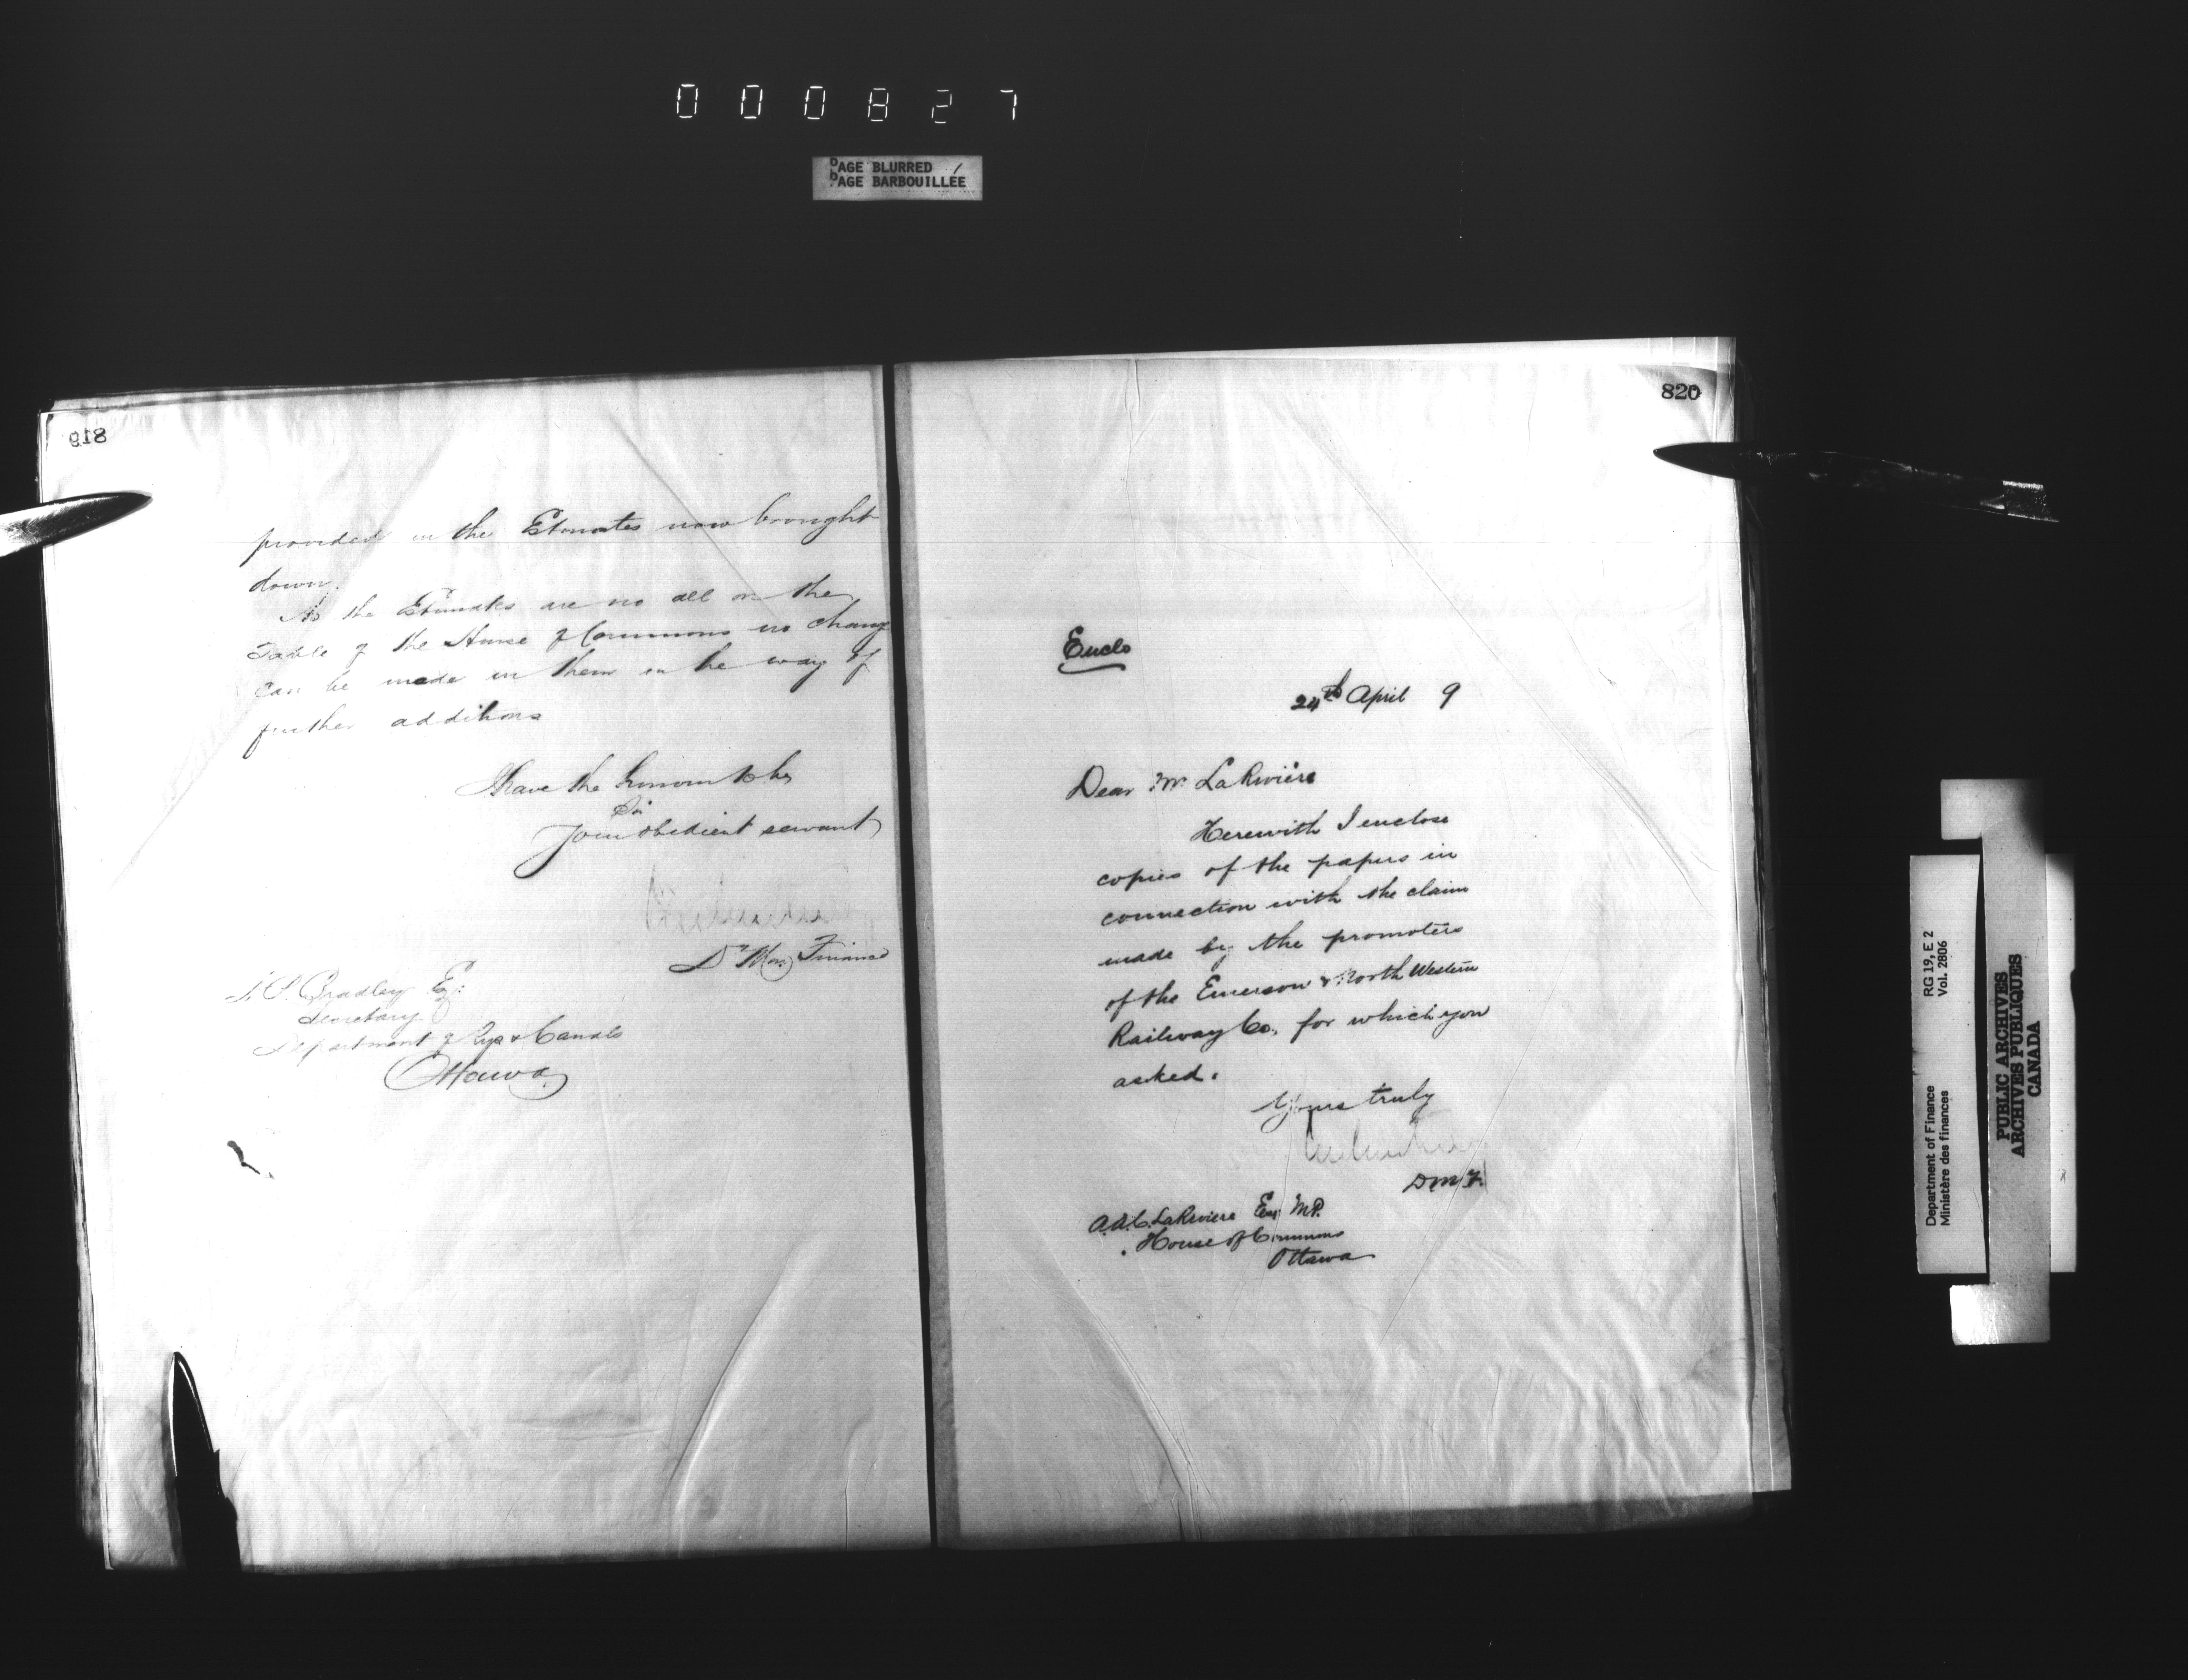 000827
PAGE BLURRED
PAGE BARBOUILLÉE
819
provided in the Estimates now brought
down.
As the Estimates are no all on the
Table of the House of Commons no change
can be made in them in he way of
further additions
I have the honour to be
Sir
Your obedient servant
D. Min. Finance
Bradley Esq.
Secretary
Department of Rys & Canals
Ottawa
820
Enclo
24th April 9
Dear Mr. LaRivière
Herewith I enclose
copies of the papers in
connection with the claim
made by the promoters
of the Emerson & North Western
Railway Co. for which you
asked.
Yours truly
DMF.
A.A.C. LaRiviere Esq M.P.
House of Commons
Ottawa
Department of Finance
Ministère des finances
RG 19, E 2
Vol. 2806
PUBLIC ARCHIVES
ARCHIVES PUBLIQUES
CANADA